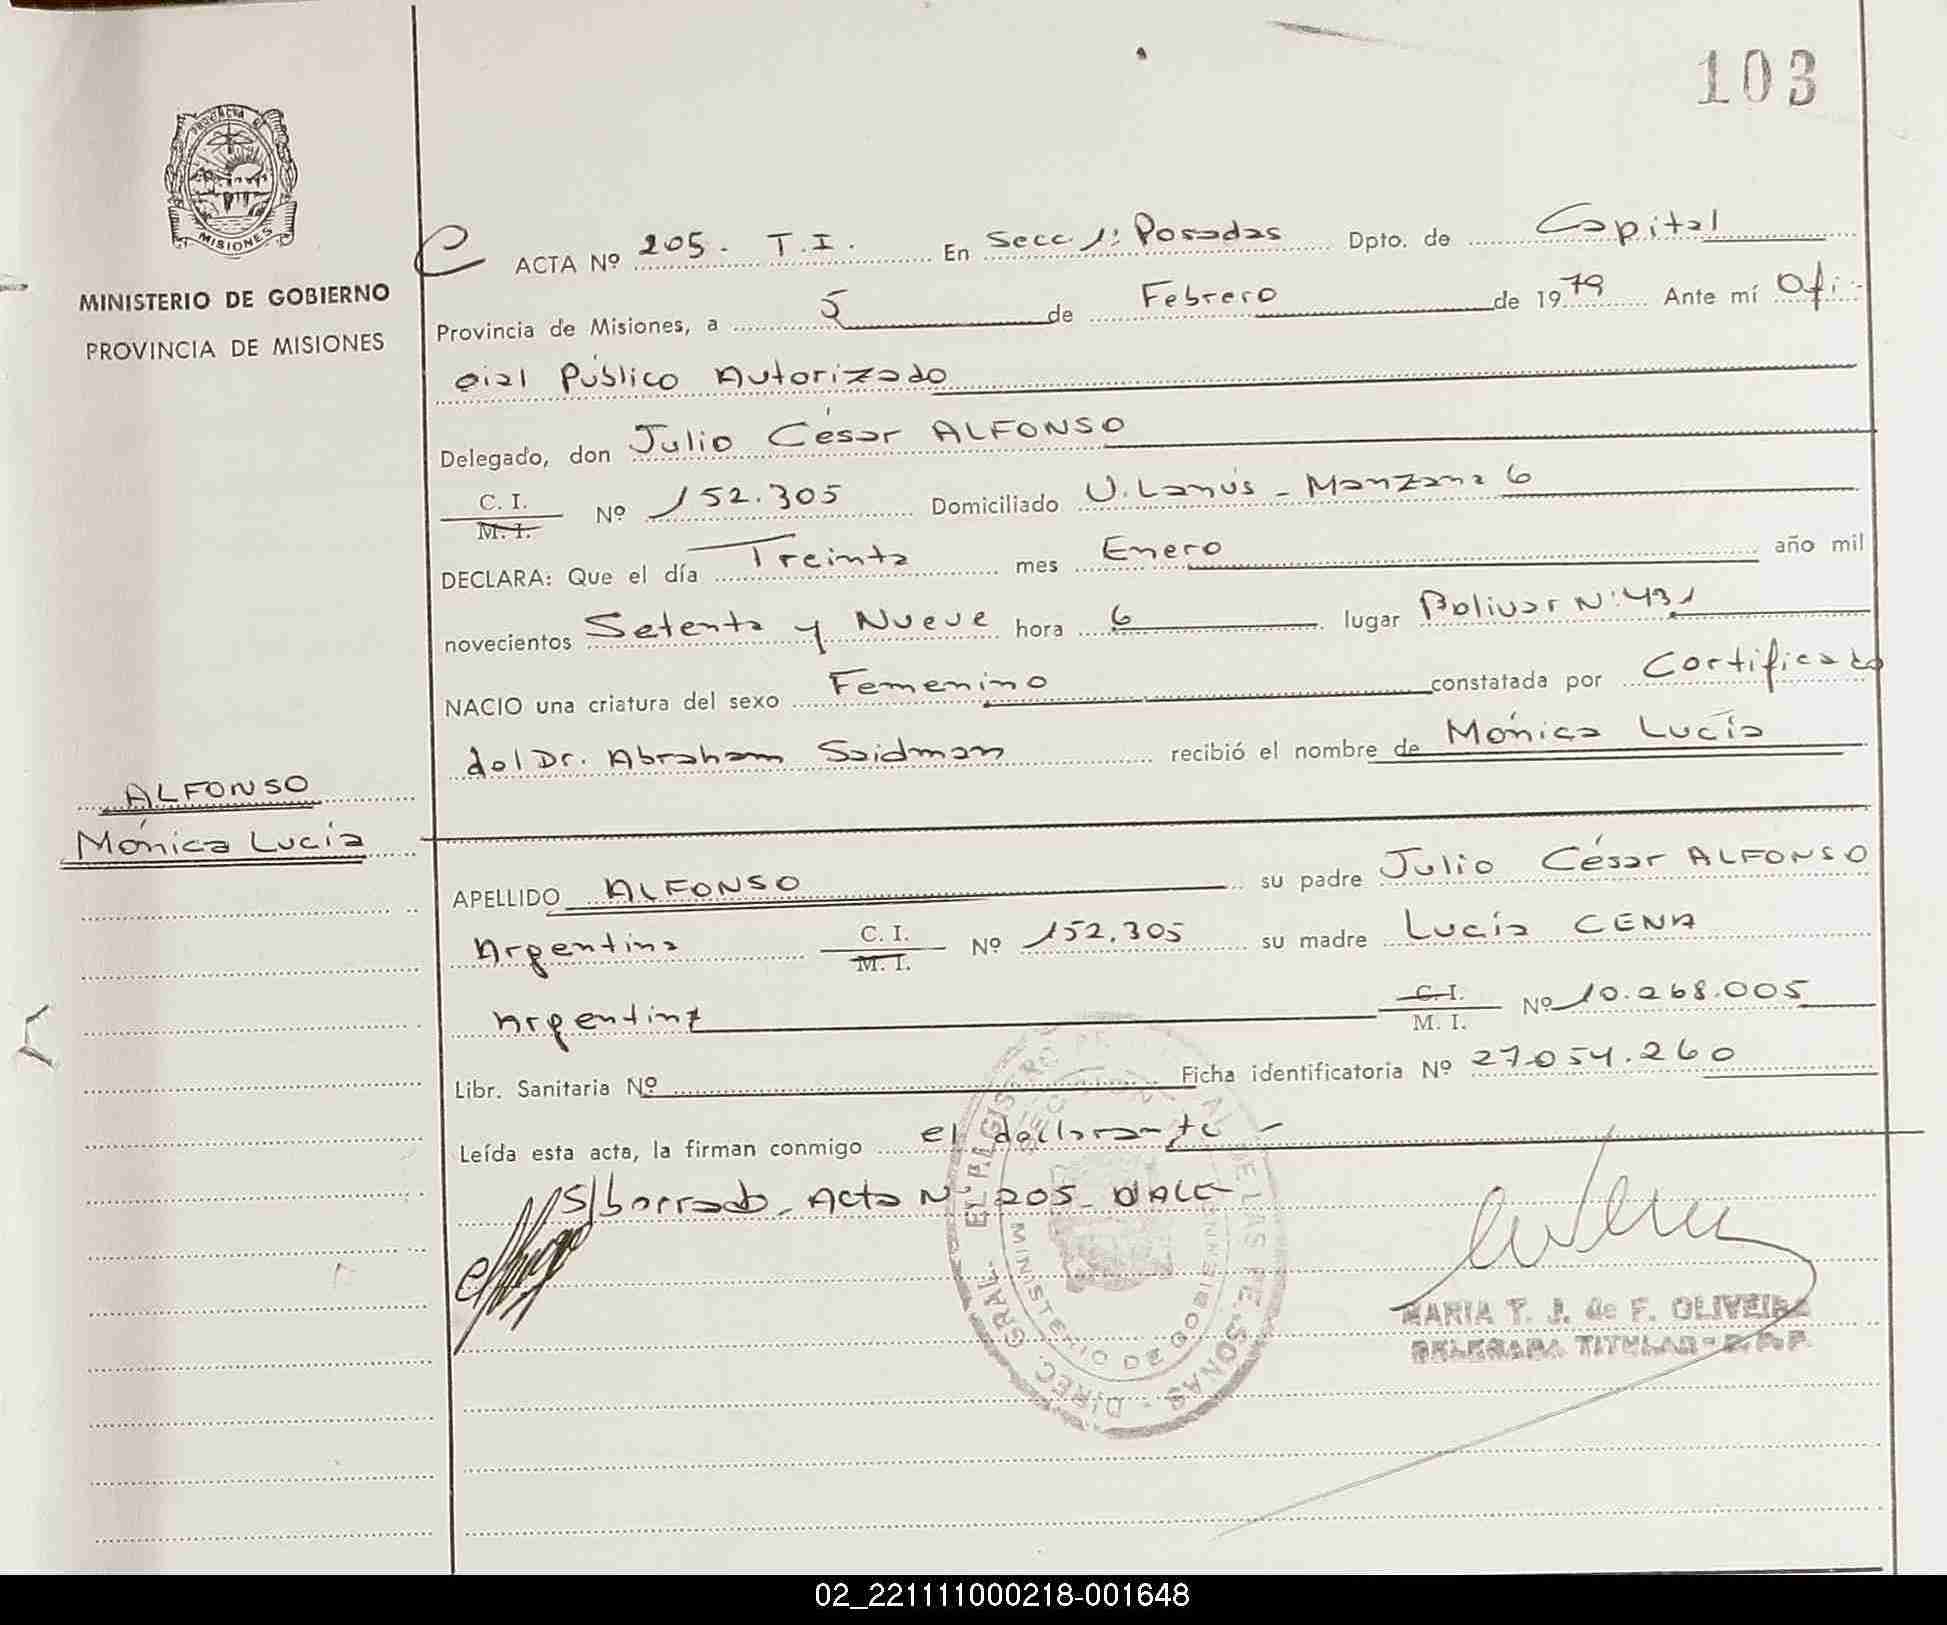 103
PROVINCIA DE
MISIONES
MINISTERIO DE GOBIERNO
PROVINCIA DE MISIONES
ACTA Nº 205. T.I. En Secc. 1: Posadas Dpto. de Capital
Provincia de Misiones, a 5 de Febrero de 1979 Ante mí Ofi-
cial Público Autorizado
Delegado, don Julio César ALFONSO
C. I.
M. I. Nº 152.305 Domiciliado U. Lanús - Manzana 6
DECLARA: Que el día Treinta mes Enero año mil
novecientos Setenta y Nueve hora 6 lugar Bolivar Nº 431
NACIO una criatura del sexo Femenino constatada por Certificado
del Dr. Abraham Saidman recibió el nombre de Mónica Lucía
ALFONSO
Mónica Lucía
APELLIDO ALFONSO su padre Julio César ALFONSO
Argentina C. I.
M. I. Nº 152.305 su madre Lucía CENA
Argentina C. I.
M. I. Nº 10.268.005
Libr. Sanitaria Nº Ficha identificatoria Nº 27.054.260
Leída esta acta, la firman conmigo el declarante -
S/borrado - Acta Nº 205 - VALE
MARIA T. J. de F. OLIVEIRA
DELEGADA TITULAR - R. P. P.
02_221111000218-001648